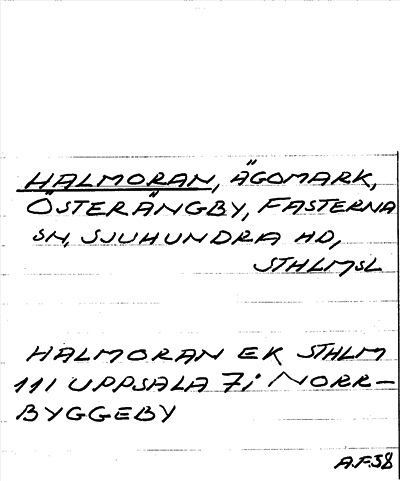 HALMORAN, ÄGOMARK,
ÖSTERÄNGBY, FASTERNA
SN, SJUHUNDRA HD,
STHLMSL
HALMORAN EK STHLM
111 UPPSALA 7i NORR-
BYGGEBY
A.F.58